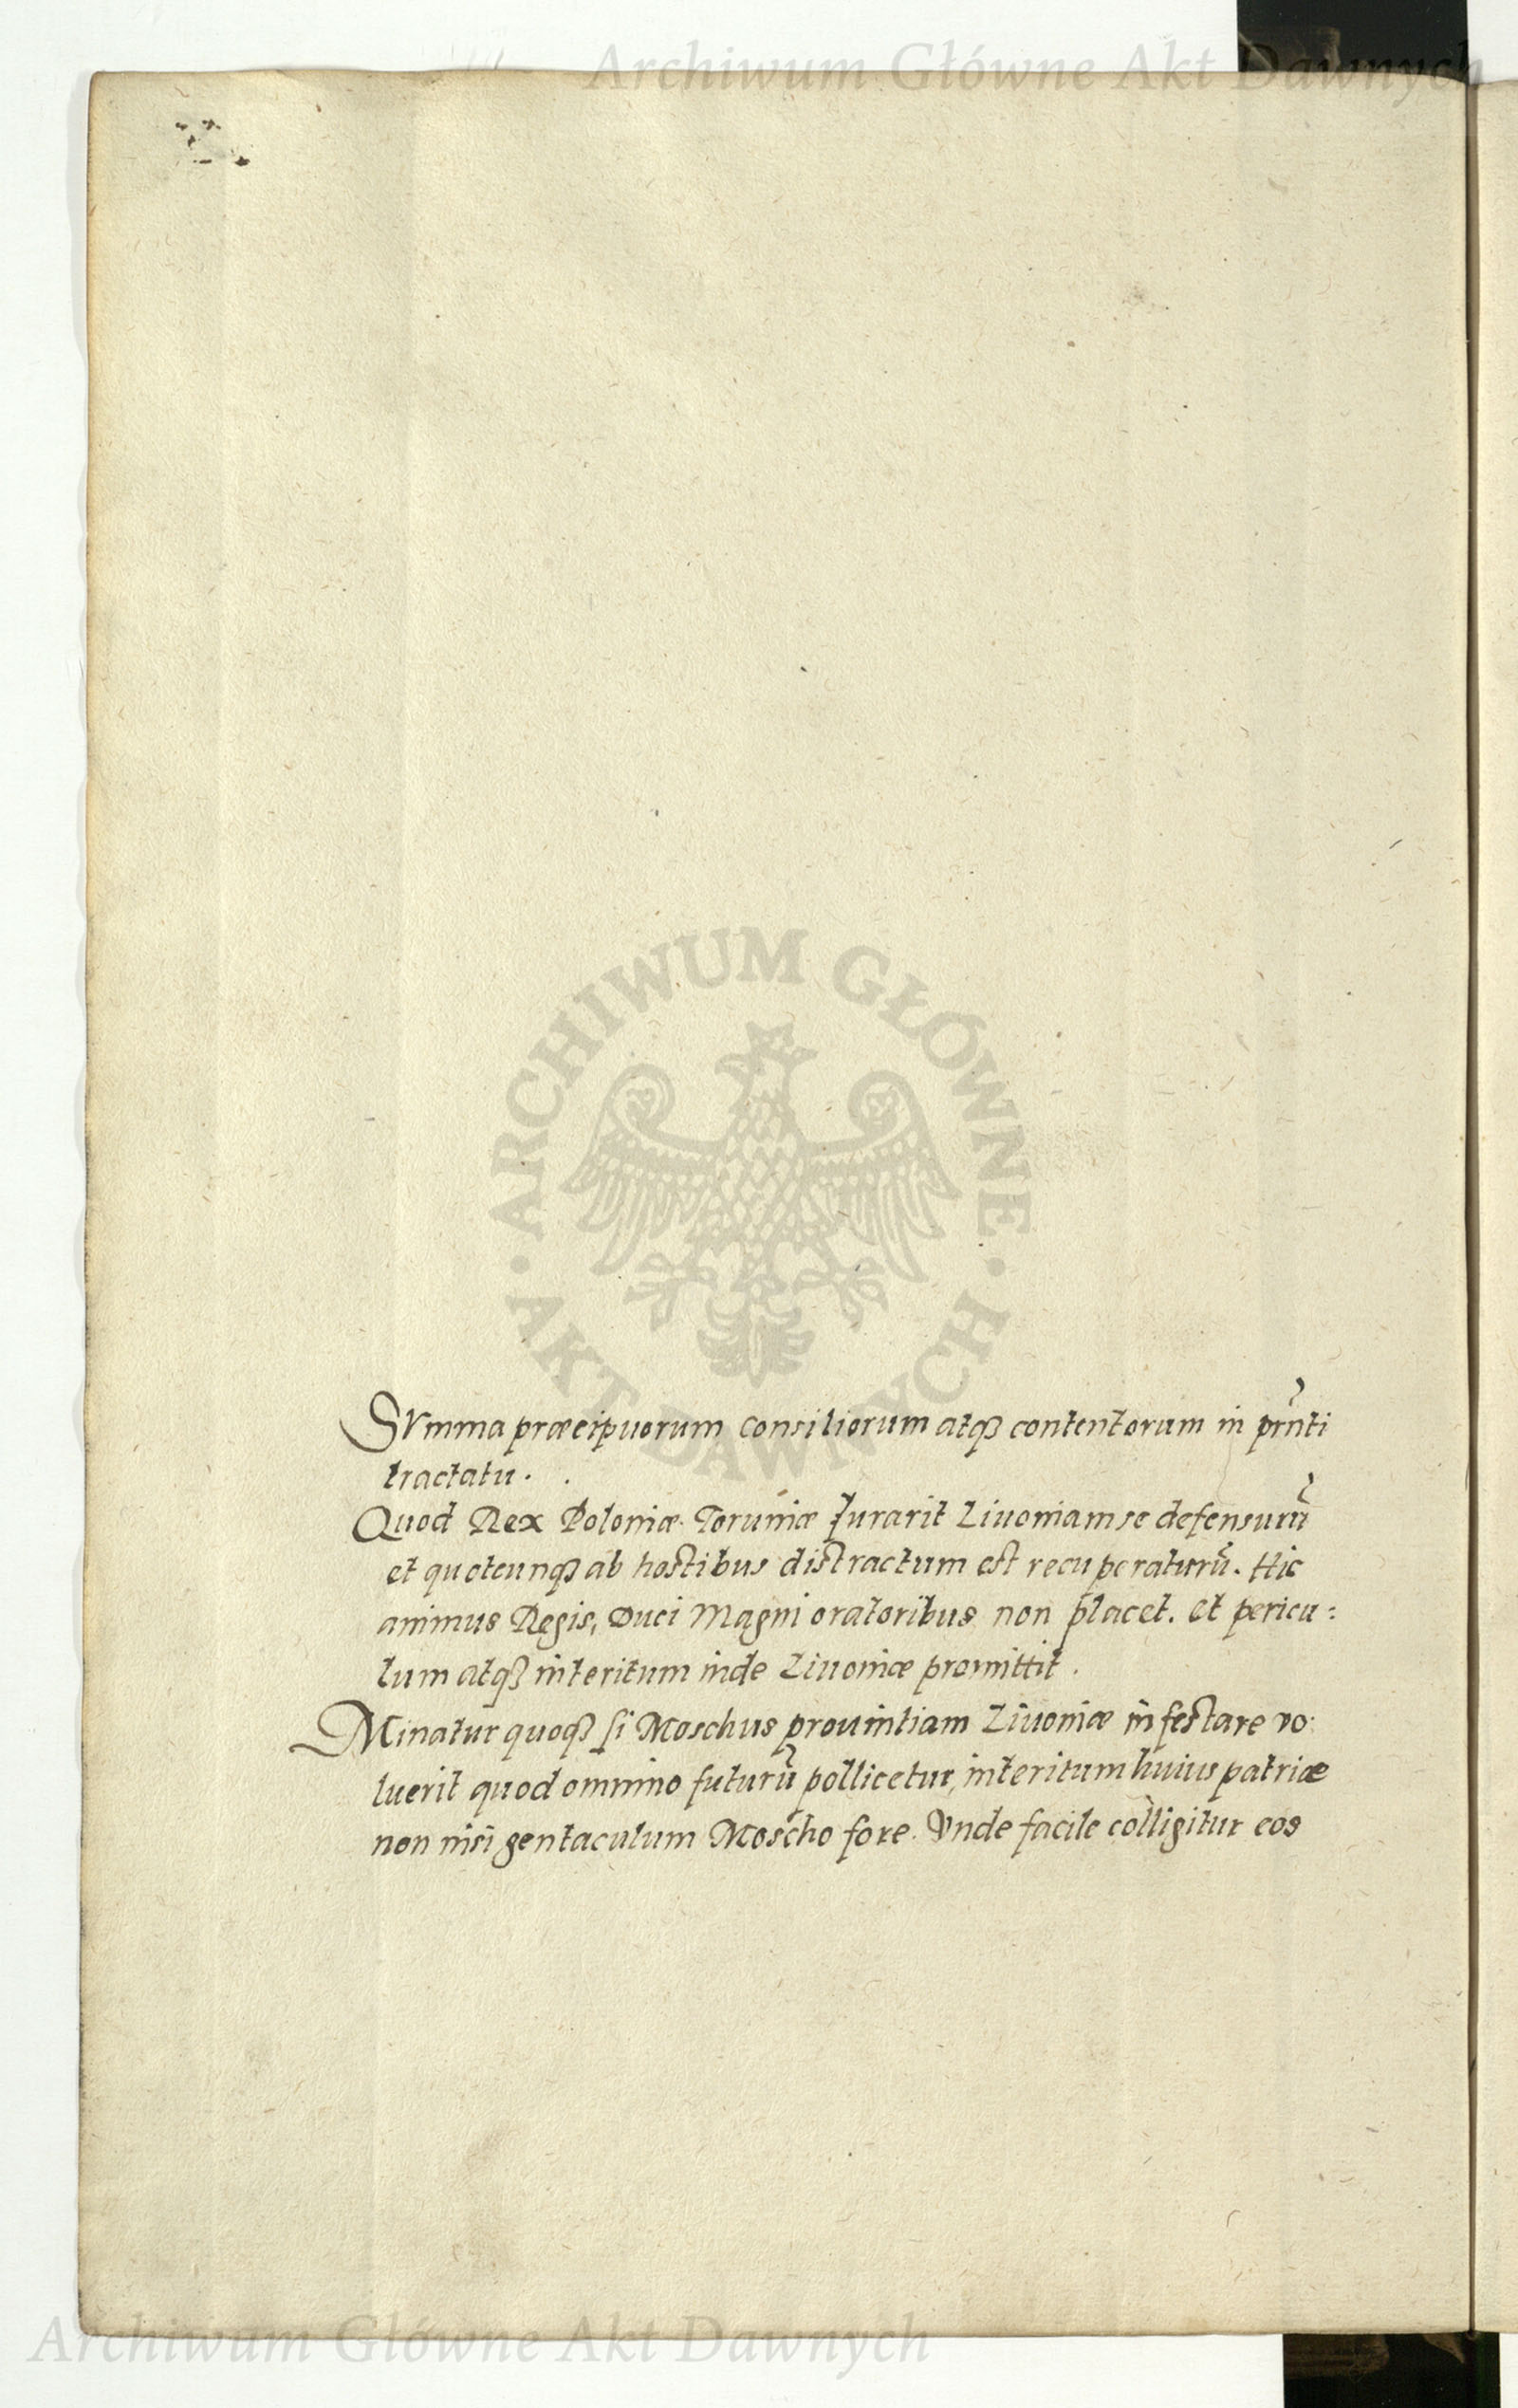 Archiwum Główne Akt Dawnych
ARCHIWUM GŁÓWNE
AKT DAWNYCH
SVmma præcipuorum consiliorum atqꝫ contentorum in prñti
tractatu.
Quod Rex Poloniæ Toruniæ Jurarit Liuoniam se defensurũ
et quotcunqꝫ ab hostibus distractum est recuperaturũ. Hic
animus Regis, Duci Magni oratoribus non placet. et pericu:
lum atqꝫ interitum inde Liuoniæ promittit.
Minatur quoqꝫ si Moschus prouintiam Liuoniæ infestare vo:
luerit quod omnino futurũ pollicetur, interitum huius patriæ
non nisi gentaculum Moscho fore. Vnde facile colligitur eos
Archiwum Główne Akt Dawnych